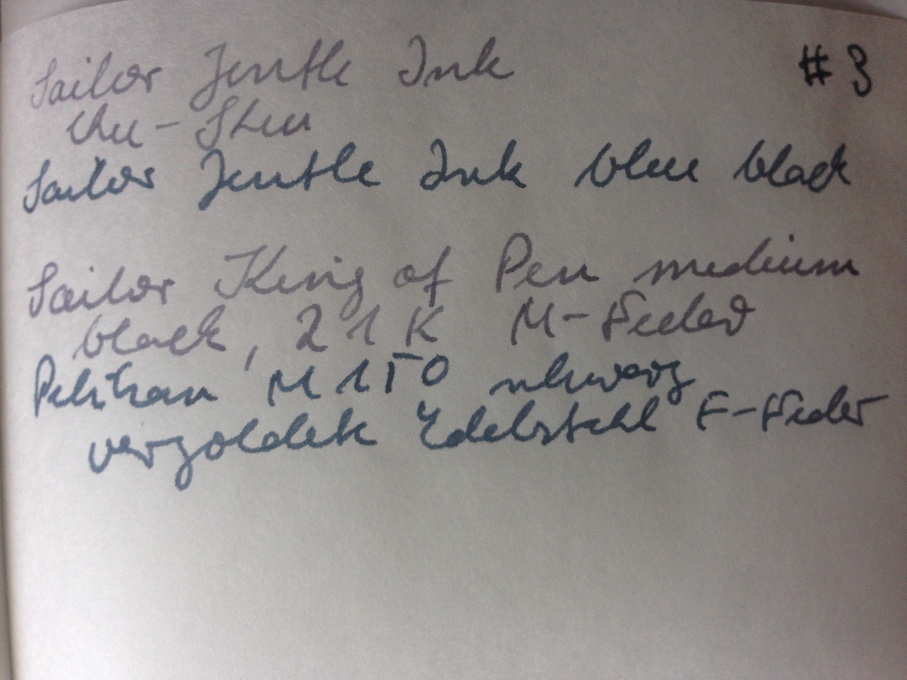 Sailor Jentle Ink #3
Chu-Shu
Sailor Jentle Ink blue black
Sailor King of Pen medium
black, 21K M-Feder
Pelikan M150 schwarz
vergoldete Edelstahl F-Feder